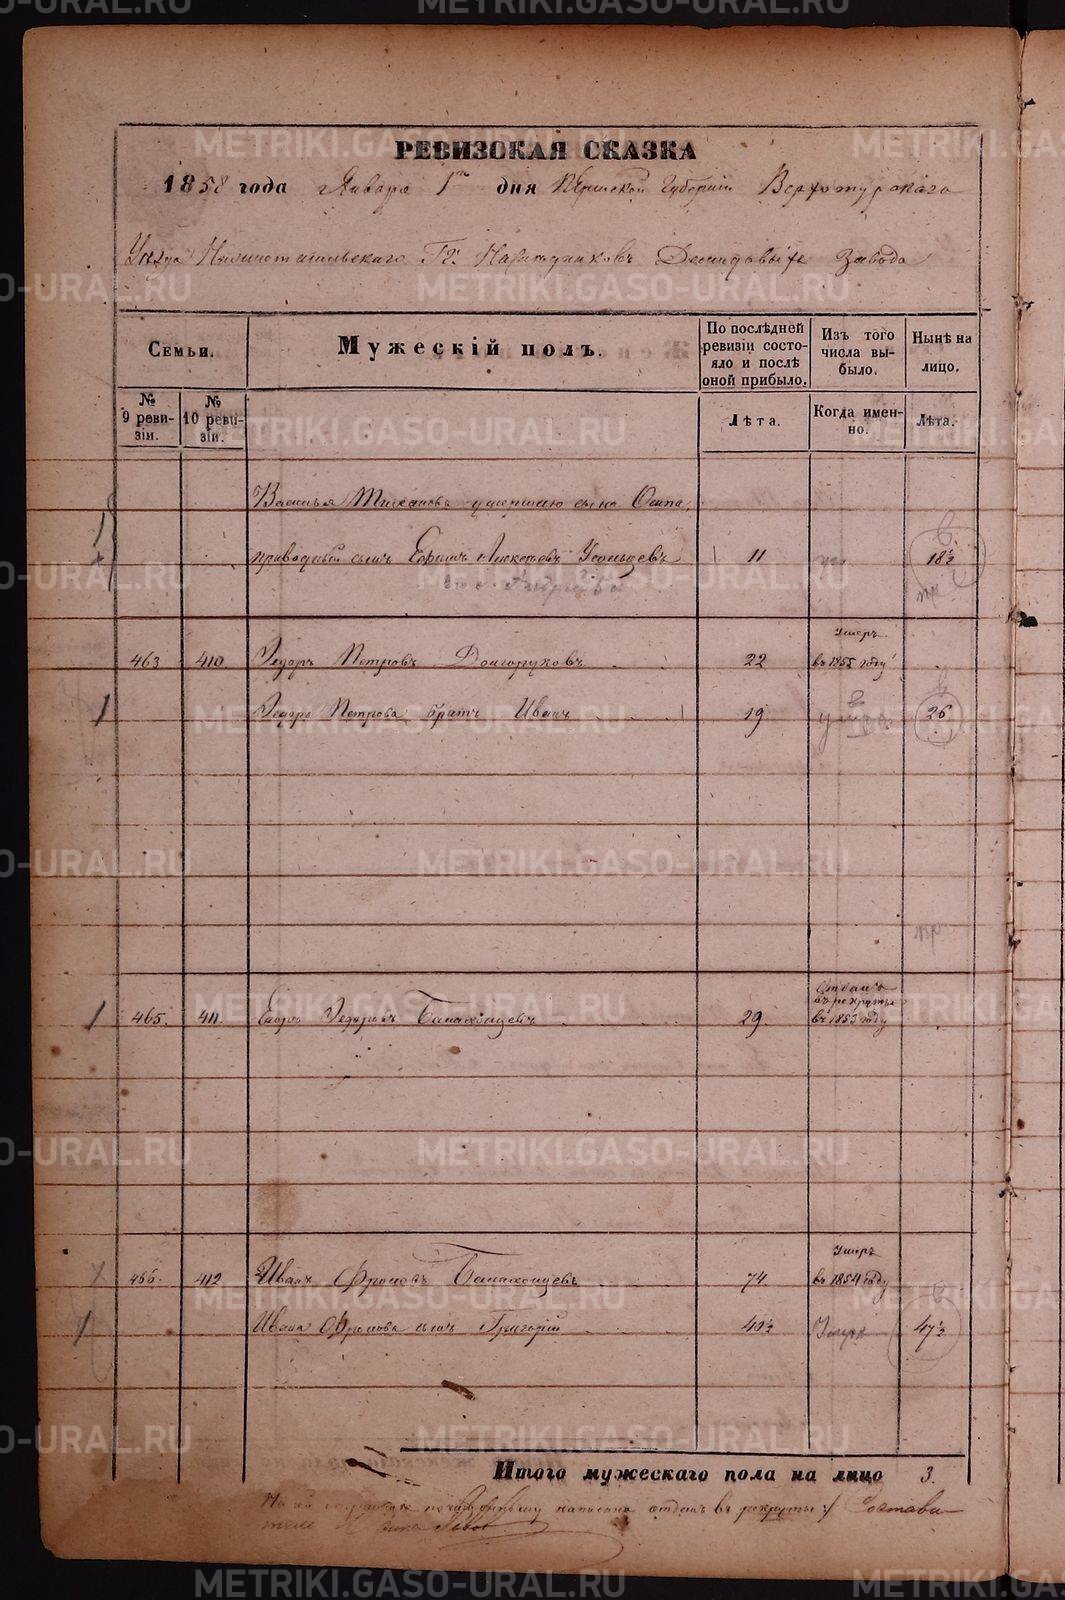 РЕВИЗСКАЯ СКАЗКА
1858 года Января 1го дня Пермской Губернии Верхотурскаго
Уезда Нижнотагильскаго Гг. Наследниковъ Демидовыхъ Завода
Семьи.
Мужескій полъ.
По послѣдней ревизіи состояло и послѣ оной прибыло.
Изъ того числа выбыло.
Нынѣ на лицо.
№ 9 ревизіи.
№ 10 ревизіи.
Лѣта.
Когда именно.
Лѣта.
Василья умершаго сына Осипа
сынъ Ефимъ Алексѣевъ 11 18½
463 410 Федоръ Петровъ Долгоруковъ 22 Умеръ въ 1855 году
Федора Петрова братъ Иванъ 19 26
пр
465. 411. Егоръ Федоровъ 29. Отданъ въ рекруты въ 1853 году
466. 412 Иванъ 74. Умеръ въ 1854 году
Ивана сынъ Григорій 40½ 47½
Итого мужескаго пола на лицо 3.
На сей странице по написано отданъ въ рекруты :/ Состави
METRIKI.GASO-URAL.RU